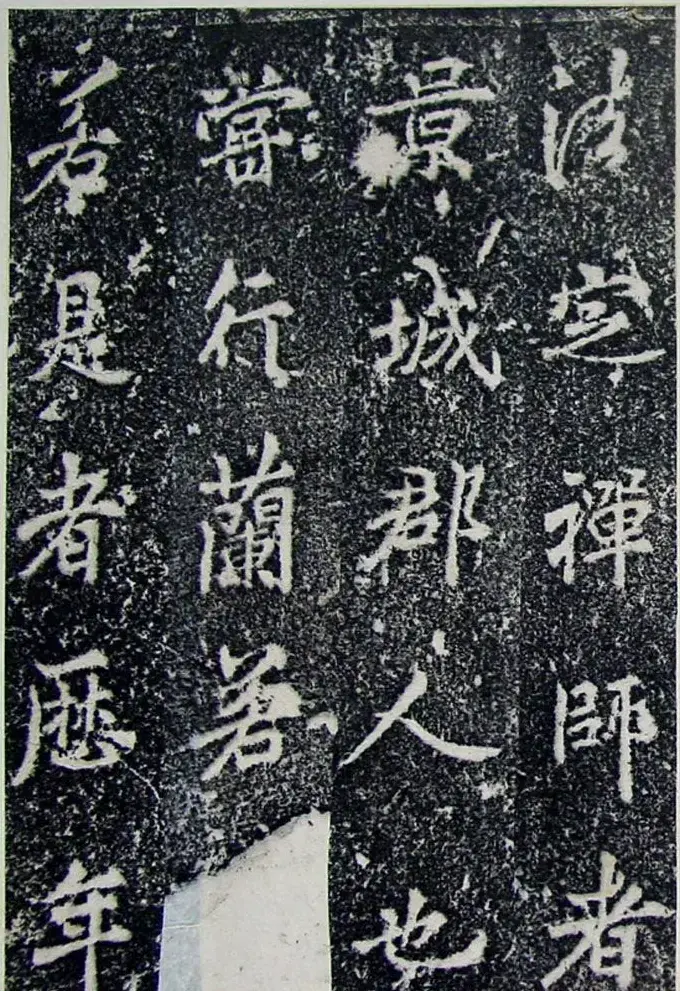 法定禪師者
景城郡人也
嘗行蘭若
若是者歷年